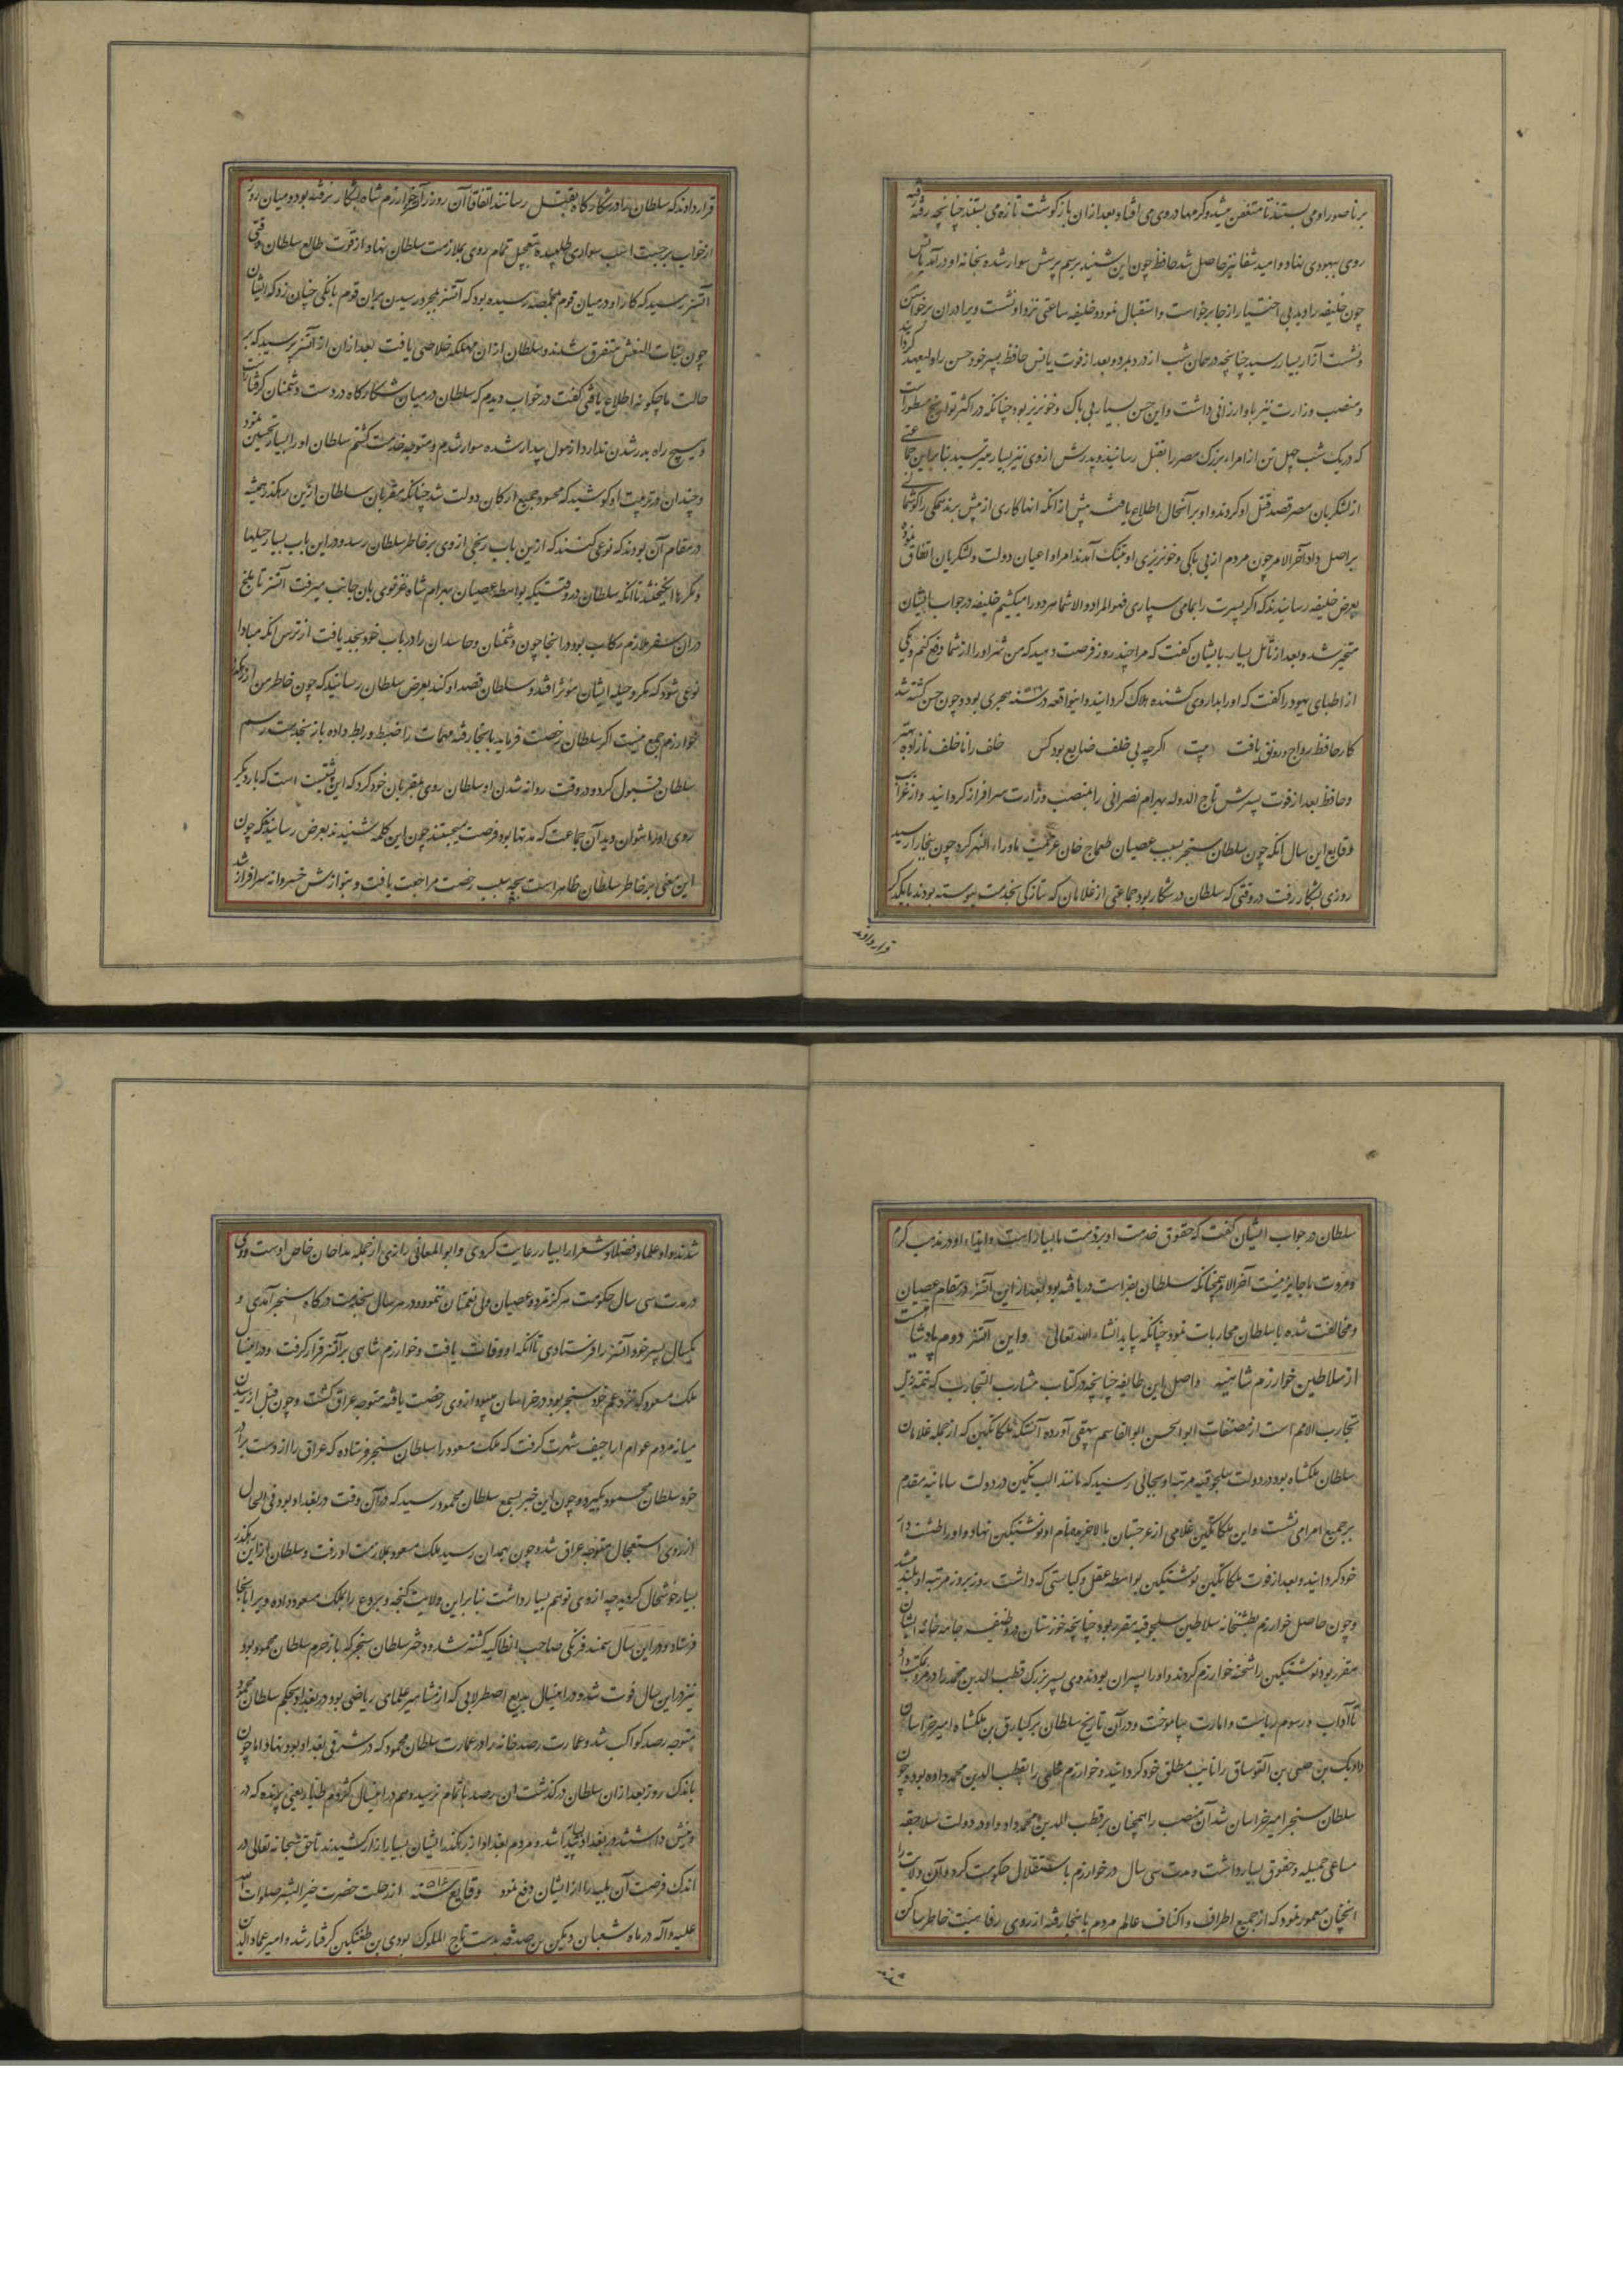 بر ناصور او می بستند تا متعفن میشد و کرمها در وی می افتاد و بعد از ان باز گوشت تازه می بستند چنانچه رفته رفته
روی به بهبودی نهاد و امید شفا نیز حاصل شد حافظ چون این شنید برسم پرسش سوار شده بخانه او درآمد یانس
چون خلیفه را دید بی اختیار از جا برخواست و استقبال نمود و خلیفه ساعتی نزد او نشست و برا دران برخواستن
و نشست آزار بسیار رسید چنانچه در همان شب از درد بمرد و بعد از فوت یانس حافظ پسر خود حسن را ولیعهد گردانید
و منصب وزارت نیز باو ارزانی داشت و این حسن بسیار بی باک و خونریز بود چنانکه در اکثر تواریخ مسطور است
که در یک شب چهل تن از امراء بزرگ مصر را بقتل رسانید و پدرش از وی نیز بسیار میترسید بنابراین جماعتی
از لشکریان مصر قصد قتل او کردند و او بر آنحال اطلاع یافت پیش از انکه انها کاری از پیش برند همگی را گوشمالی
براصل داد آخر الامر چون مردم از بی باکی و خونریزی او بتنک آمدند امرا و اعیان دولت و لشکریان اتفاق نموده
بعرض خلیفه رسانیدند که اگر پسرت را بما می سپاری فهو المراد و الا شما هر دو را میکشیم خلیفه در جواب ایشان
متحیر شد و بعد از تأمل بسیار بایشان گفت که مرا چند روز فرصت دهید که من شر او را از شما دفع کنم و یکی
از اطبای یهود را گفت که او را بداروی کشنده هلاک گردانید و اینواقعه در سنه هجری بود و چون حسن کشته شد
کار حافظ رواج و رونق یافت (بیت) اگرچه بی خلف ضایع بود کس خلف را ناخلف نازاده بهتر
و حافظ بعد از فوت پسرش تاج الدوله بهرام نصرانی را بمنصب وزارت سرافراز گردانید و از غرایب
وقایع این سال انکه چون سلطان سنجر بسبب عصیان طمغاج خان عزیمت ماوراء النهر کرد چون ببخارا رسید
روزی بشکار رفت در وقتی که سلطان در شکار بود جماعتی از غلامان که بتازگی بخدمت پیوسته بودند بایکدیگر
قرار دادند
قرار دادند که سلطان را در شکارگاه بقتل رسانند اتفاقا آن روز آتسز خوارزم شاه بشکار نرفته بود و میان روز
از خواب برجست اسب سواری طلبیده بتعجیل تمام روی بملازمت سلطان نهاد و از قوت طالع سلطان وقتی
آتسز رسید که کار او در میان قوم بمخمصه رسیده بود که آتسز بمجرد رسیدن بران قوم بانگی چنان زد که ایشان
چون بنات النعش متفرق شدند و سلطان از ان مهلکه خلاصی یافت بعد از ان از آتسز پرسید که بر
حالت ما چگونه اطلاع یافتی گفت در خواب دیدم که سلطان در میان شکارگاه در دست دشمنان گرفتار است
و هیچ راه بدر شدن ندارد از هول بیدار شده سوار شدم و متوجه خدمت گشتم سلطان او را بسیار تحسین نمود
و چندان در تربیت او کوشید که محسود جمیع ارکان دولت شد چنانکه مقربان سلطان ازین رهکذر همیشه
در مقام آن بودند که نوعی کنند که ازین باب رنجی از وی بر خاطر سلطان رسد و در این باب بسیار حیلها
و مکرها انگیختند تا انکه سلطان در وقتیکه بواسطه عصیان بهرام شاه غزنوی بان جانب میرفت آتسز تا بلخ
دران سفر ملازم رکاب بود در انجا چون دشمنان و حاسدان را در باب خود بجد یافت از ترس انکه مبادا
نوعی شود که مکر و حیله ایشان مؤثر افتد و سلطان قصد او کند بعرض سلطان رسانید که چون خاطر من از ممر
خوارزم جمع نیست اگر سلطان رخصت فرماید بانجا رفته مهمات را ضبط و ربط داده باز بخدمت رسم
سلطان قبول کرد و در وقت روانه شدن او سلطان روی بمقربان خود کرد که این پشتیست است که بار دیگر
روی او را نتوان دید آن جماعت که مدتها بود فرصت میجستند چون این کلمه شنیدند بعرض رسانیدند که چون
این معنی بر خاطر سلطان ظاهر است بچه سبب رخصت مراجعت یافت و بنوازش خسروانه سرافراز شد
سلطان در جواب ایشان گفت که حقوق خدمت او بر ذمت ما بسیار است و ایذاء او در مذهب کرم
و مروت ما جایز نیست آخر الامر همچنانکه سلطان بفراست دریافته بود بعد از این آتسز در مقام عصیان
و مخالفت شده با سلطان محاربات نمود چنانکه بیاید انشاء الله تعالی و این آتسز دوم پادشاهیست
از سلاطین خوارزم شاهیه و اصل این طایفه چنانچه در کتاب مشارب التجارب که تتمه ذیل
تجارب الامم است از مصنفات ابو الحسن ابو القاسم بیهقی آورده آنستکه بلکاتکین که از جمله غلامان
سلطان ملکشاه بود در دولت سلجوقیه مرتبه او بجائی رسید که مانند الب تکین در دولت سامانیه مقدم
بر جمیع امرا می نشست و این بلکاتکین غلامی از غرجستان بالاخر بمقام او نوشتکین نهاد و او را طشت دار
خود گردانید و بعد از فوت بلکاتکین نوشتکین بواسطه عقل و کیاستی که داشت روز بروز مرتبه او بلند میشد
و چون حاصل خوارزم بطشتخانه سلاطین سلجوقیه مقرر بود چنانچه خوزستان در وظیفه جامه خانه ایشان
مقرر بود نوشتکین را شحنه خوارزم کردند و او را پسران بودند وی پسر بزرگ قطب الدین محمد را در مرو بمکتب داد
تا آداب و رسوم ریاست و امارت بیاموخت و در آن تاریخ سلطان برکیارق بن ملکشاه امیر خراسان
دادبک بن حبشی بن التونساق را نایب مطلق خود گردانیده خوارزم علمی را بقطب الدین محمد داده بود و چون
سلطان سنجر امیر خراسان شد آن منصب را همچنان بر قطب الدین محمد داد و او در دولت سلاجقه
مساعی جمیله و حقوق بسیار داشت و مدت سی سال در خوارزم باستقلال حکومت کرد و آن ولایت را
انچنان معمور نمود که از جمیع اطراف و اکناف عالم مردم بانجا رفته از روی رفاهیت خاطر ساکن
شدند
شدند و او علما و فضلا و شعرا را بسیار رعایت کردی و ابو المعالی رازی از جمله مداحان خاص اوست و وی
در مدت سی سال حکومت هرگز تمرد و عصیان ولی نعمتان ننمود و در هر سال بخدمت درگاه سنجر آمدی و
یکسال پسر خود آتسز را فرستادی تا انکه او وفات یافت و خوارزم شاهی بر آتسز قرار گرفت و در اینسال
ملک مسعود که نزد عم خود سنجر بود در خراسان میبود از وی رخصت یافته متوجه عراق گشت و چون قبل از رسیدن
میانه مردم عوام اراجیف شهرت گرفت که ملک مسعود را سلطان سنجر فرستاده که عراق را از دست برادر
خود سلطان محمود بگیرد و چون این خبر بسمع سلطان محمود رسید که در آن وقت در بغداد بود فی الحال
از روی استعجال متوجه عراق شد و چون بهمدان رسید ملک مسعود بملازمت او رفت و سلطان از این رهکذر
بسیار خوشحال گردید چه از وی توهم بسیار داشت بنابراین ولایت گنجه و بردع را بملک مسعود داده ویرا بانجا
فرستاد و در این سال سمند فرنگی صاحب انطاکیه کشته شد و دختر سلطان سنجر که باز حرم سلطان محمود بود
نیز در این سال فوت شد و در اینسال بدیع اصطرلابی که از مشاهیر علمای ریاضی بود در بغداد بحکم سلطان محمود
متوجه رصد کواکب شد و عمارت رصد خانه را در عمارت سلطان محمود که در شرقی بغداد بود بنهاد اما چون
باندک روز بعد از ان سلطان درگذشت ان رصد ناتمام نرسید و هم در اینسال کژدم طیاره یعنی پرنده که در
و نیش داشتند در بغداد پیدا شد و مردم بغداد از رهکذر ایشان بسیار ازار کشیدند تا حق سبحانه تعالی در
اندک فرصت آن بلیه را از ایشان دفع نمود وقایع سنه ۵۱۶ از رحلت حضرت خیر البشر صلوات الله
علیه و آله در ماه شعبان دبکین بن صدقه بدست تاج الملوک بوری بن طغتکین گرفتار شد و امیر عماد الدین